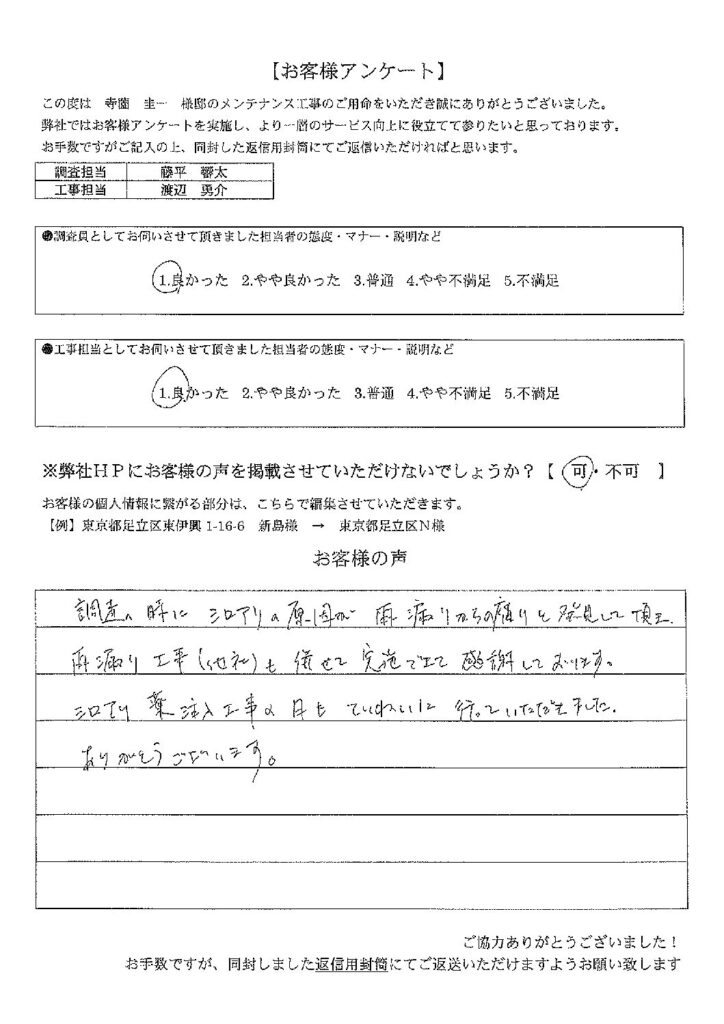 【お客様アンケート】
この度は 寺薗 圭一 様邸のメンテナンス工事のご用命をいただき誠にありがとうございました。
弊社ではお客様アンケートを実施し、より一層のサービス向上に役立てて参りたいと思っております。
お手数ですがご記入の上、同封した返信用封筒にてご返信いただければと思います。
調査担当 藤平 響太
工事担当 渡辺 勇介
●調査員としてお伺いさせて頂きました担当者の態度・マナー・説明など
1.良かった 2.やや良かった 3.普通 4.やや不満足 5.不満足
●工事担当としてお伺いさせて頂きました担当者の態度・マナー・説明など
1.良かった 2.やや良かった 3.普通 4.やや不満足 5.不満足
※弊社HPにお客様の声を掲載させていただけないでしょうか?【 可・不可 】
お客様の個人情報に繋がる部分は、こちらで編集させていただきます。
【例】東京都足立区東伊興1-16-6 新島様 → 東京都足立区N様
お客様の声
調査の時にシロアリの原因が雨漏りからの腐りと発見して頂き、
雨漏り工事(他社)も併せて実施できて感謝しております。
シロアリ薬注入工事の日もていねいに行っていただきました。
ありがとうございます。
ご協力ありがとうございました!
お手数ですが、同封しました返信用封筒にてご返送いただけますようお願い致します